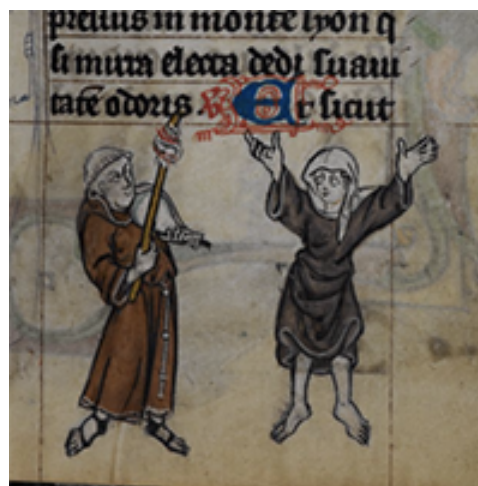 pretiuis in monte syon q
si mirra electa dedi suaui
tatē odoris . R Et sicut